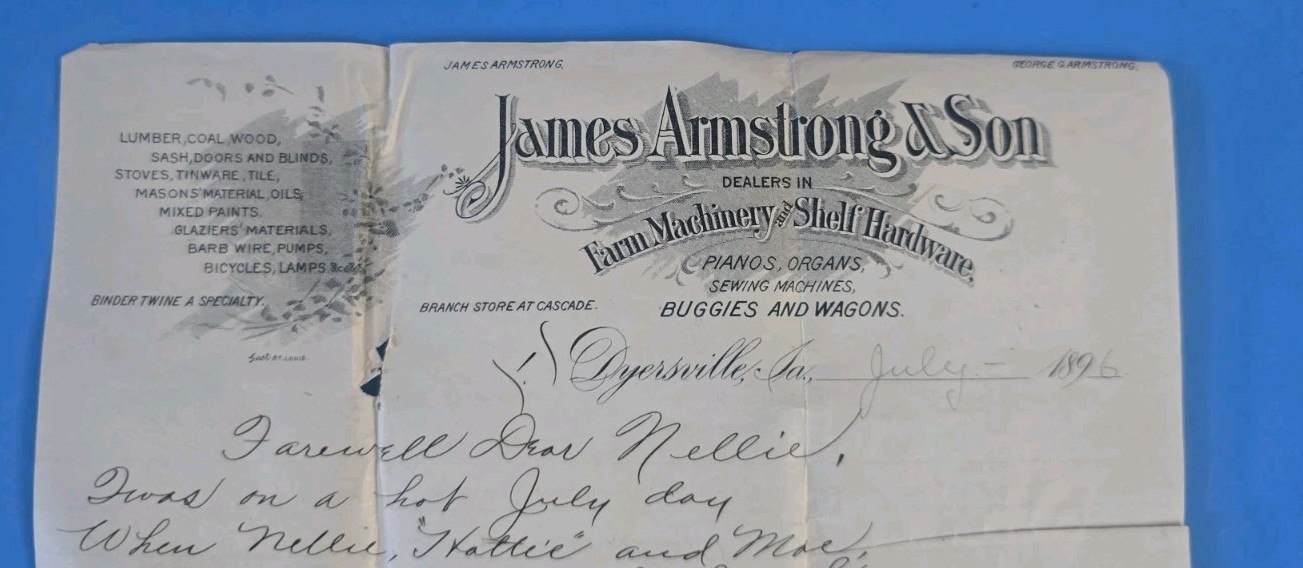 JAMES ARMSTRONG.
GEORGE G. ARMSTRONG.
James Armstrong & Son
DEALERS IN
Farm Machinery and Shelf Hardware,
PIANOS, ORGANS,
SEWING MACHINES,
BUGGIES AND WAGONS.
LUMBER, COAL WOOD,
SASH, DOORS AND BLINDS,
STOVES, TINWARE, TILE,
MASONS' MATERIAL, OILS,
MIXED PAINTS,
GLAZIERS' MATERIALS,
BARB WIRE, PUMPS,
BICYCLES, LAMPS &c &c
BINDER TWINE A SPECIALTY.
BRANCH STORE AT CASCADE.
Dyersville, Ia., July – 1896.
Farewell Dear Nellie,
Twas on a hot July day
When Nellie, "Hattie" and Mae,